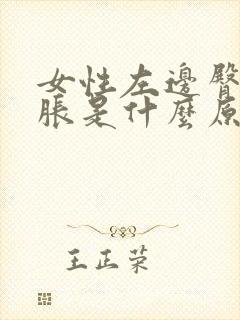 女性左邊臀
脹是什麼原
王正荣